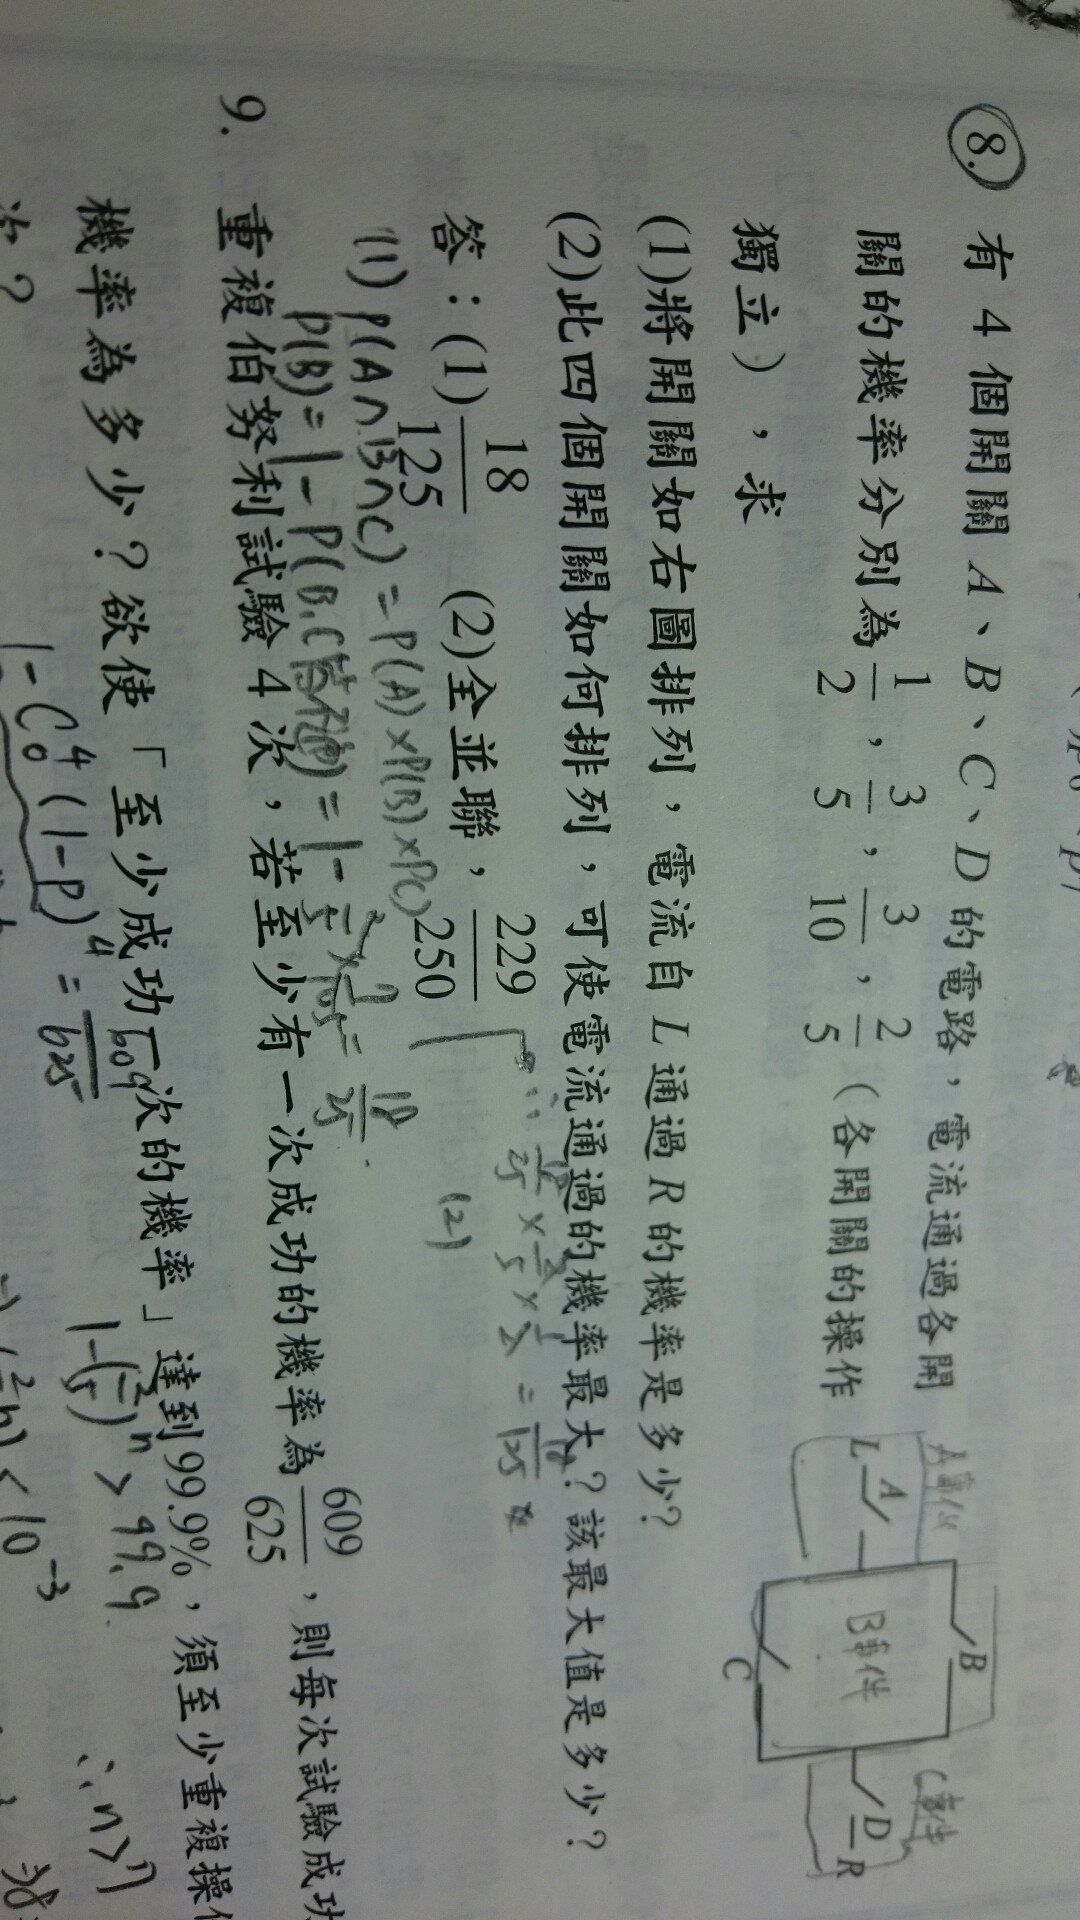 8. 有 4 個開關 A、B、C、D 的電路，電流通過各開
關的機率分別為 1/2，3/5，3/10，2/5（各開關的操作
獨立），求
(1)將開關如右圖排列，電流自 L 通過 R 的機率是多少？
(2)此四個開關如何排列，可使電流通過的機率最大？該最大值是多少？
A事件
L A
B
B事件
C
C事件
D R
答：(1) 18/125 (2)全並聯，229/250
(1) P(A∩B∩C) = P(A)×P(B)×P(C)
P(B) = 1 - P(B,C
= 1 -
18/25
18/25 × 2/5 × 1/2 = 18/125
(2)
9. 重複伯努利試驗 4 次，若至少有一次成功的機率為 609/625，則每次試驗成功
機率為多少？欲使「至少成功一次的機率」達到99.9%，須至少重複操作
次？
1-C⁴₀(1-P)⁴ = 609/625
1-(2/5)ⁿ > 99.9
< 10⁻³
∴n>7